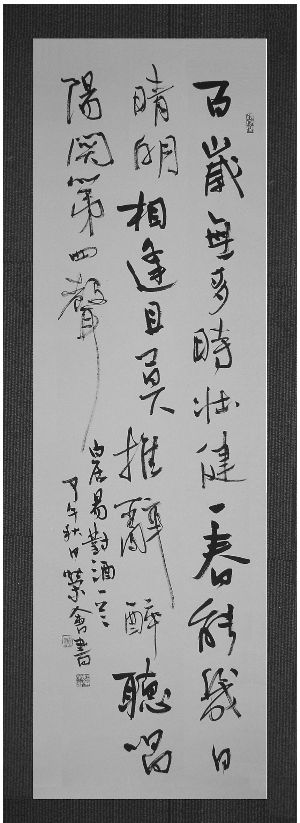 百歲無多時壯健一春能幾日
晴明相逢且莫推辭醉聽唱
陽關第四聲
白居易對酒
甲午秋日